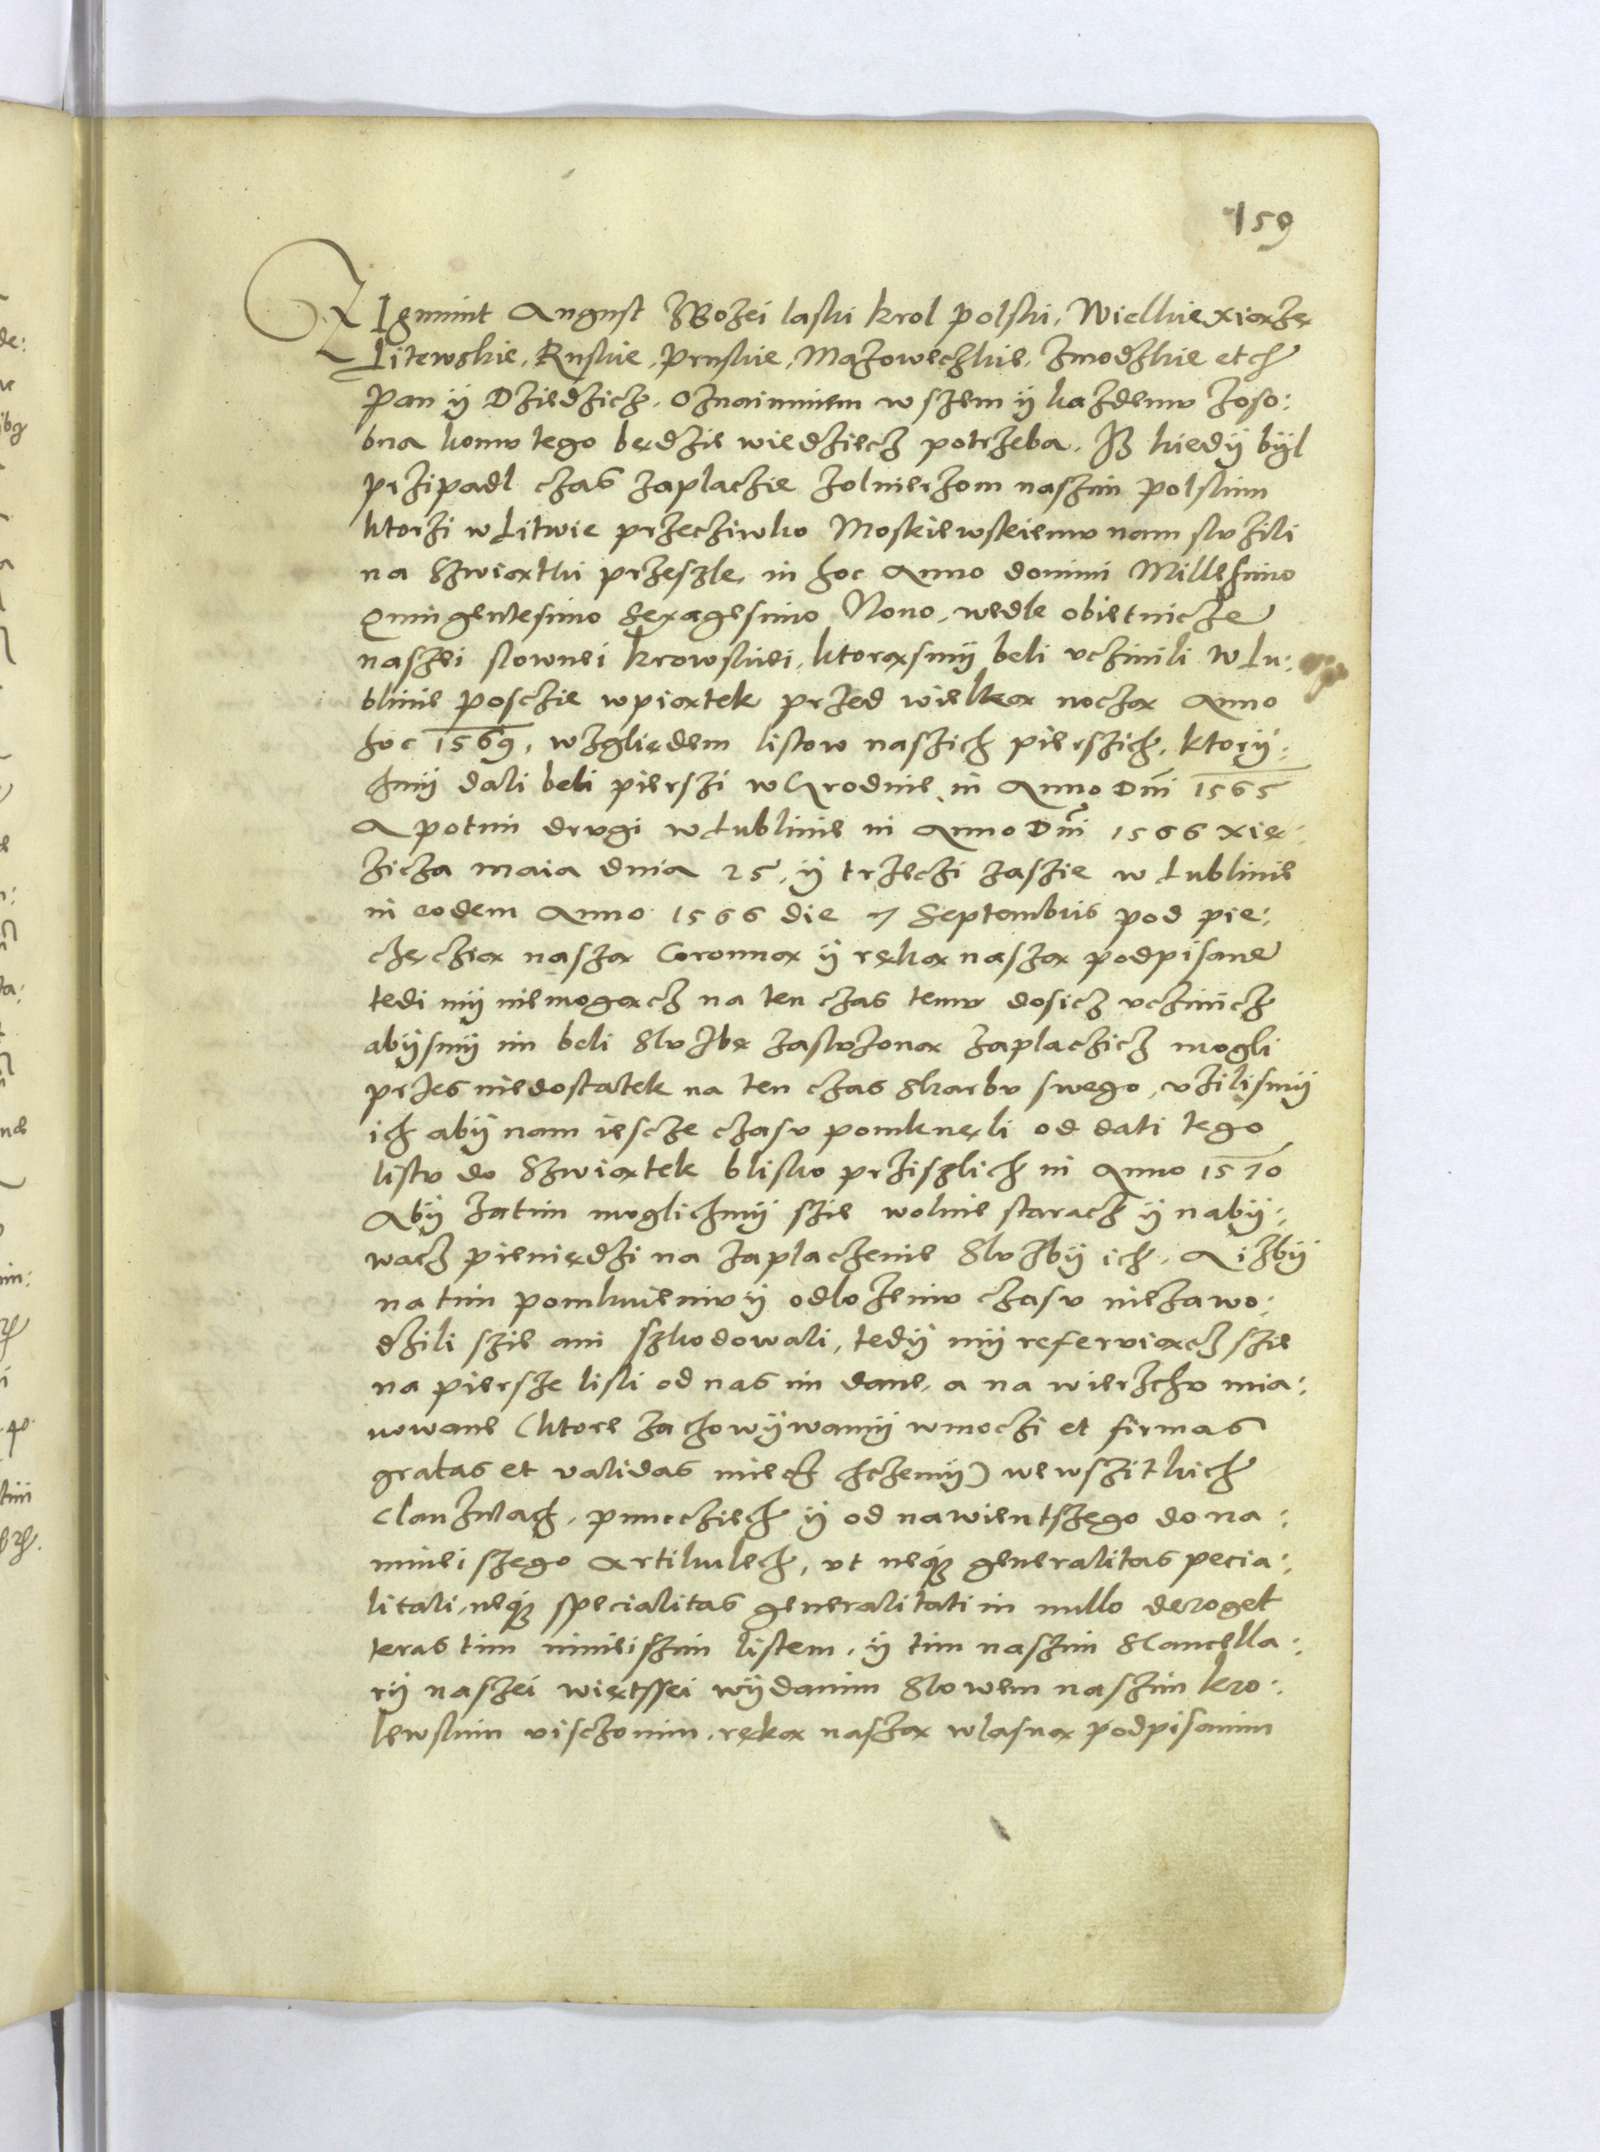 159
Zigmunt August ZBozei laski krol polski, Wielkie xiąże
Litewskie, Ruskie, Pruskie, Mazowechkie, Zmodzkie etch
Pan ÿ Dziedzich, Oznaimuiem wszem ÿ kazdemu zoso:
bna komu tego będzie wiedziecz potrzeba, Iß kiedÿ bÿl
przipadl czas zaplaczie zolnierzom naszim polskim
ktorzi w Litwie przecziwko Moskiewskiemu nam sluzili
na Szwiąthi przeszle, in hoc Anno domini Millesimo
Quingentesimo Sexagesimo Nono, wedle obietnicze
naszei slownei krowskiei, ktorąsmÿ beli uczinili W Lu:
blinie posczie wpiątek przed wielką noczą Anno
hoc 1569, wzglięedem listow naszich pierszich, ktorÿ:
chmÿ dali beli pierszi w Grodnie in Anno Dni 1565
A potim drugi w Lublinie in Anno Dni 1566 xię:
zicza maia dnia 25, ÿ trzeczi zaszie w Lublinie
in eodem Anno 1566 die 7 Septembris pod pie:
częczią naszą Coronną ÿ ręką naszą podpisane
tedi mÿ niemogącz na ten czas temu dosicz uczinicz
abÿsmÿ im beli Sluzbę zasluzoną zaplaczicz mogli
przes niedostatek na ten czas Skarbu swego, uzilismÿ
ich abÿ nam iescze czasu pomknęli od dati tego
listu do Szwiątek blisko przyszlich in Anno 1570
Abÿ zatim moglichmÿ szie wolnie staracz ÿ nabÿ:
wacz pieniędzi na zaplaczenie Sluzbÿ ich, A izbÿ
na tim pomknieniu ÿ odlozeniu czasu niezawo:
dzili szie ani szkodowali, tedÿ mÿ referuiącz szie
na piersze listi od nas im dane, a na wierzchu mia:
nowane (ktore zachowÿwamÿ wmoczi et firmas
gratas et validas miecz chczemÿ) wewszitkich
Clauzulach, puncziech ÿ od nawientszego do na:
mnieiszego Artikulech, ut neque generalitas specia:
litati, neque specialitas generalitati in nullo deroget
teras tim ninieiszim listem, ÿ tim naszim SCancella:
riÿ naszei więtssei wÿdanim Slowem naszim kro:
lewskim uisczonim, ręką naszą wlasną podpisanim